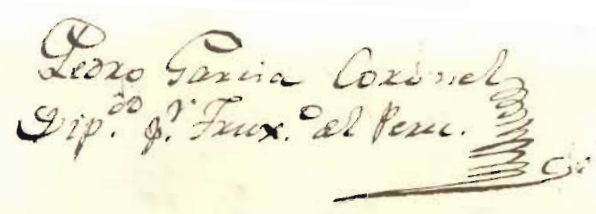 Pedro Garcia Coronel
Dip.do p.r Trux.o del Peru.